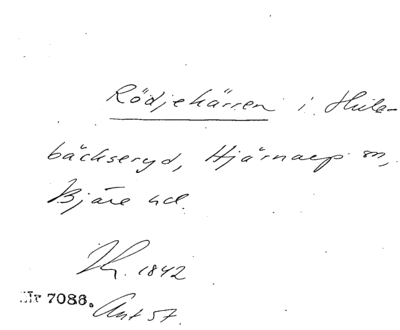 Rödjekärren i Hule-
bäckseryd, Hjärnarp sn,
Bjäre hd.
1842
Nr 7086. Ant 57.